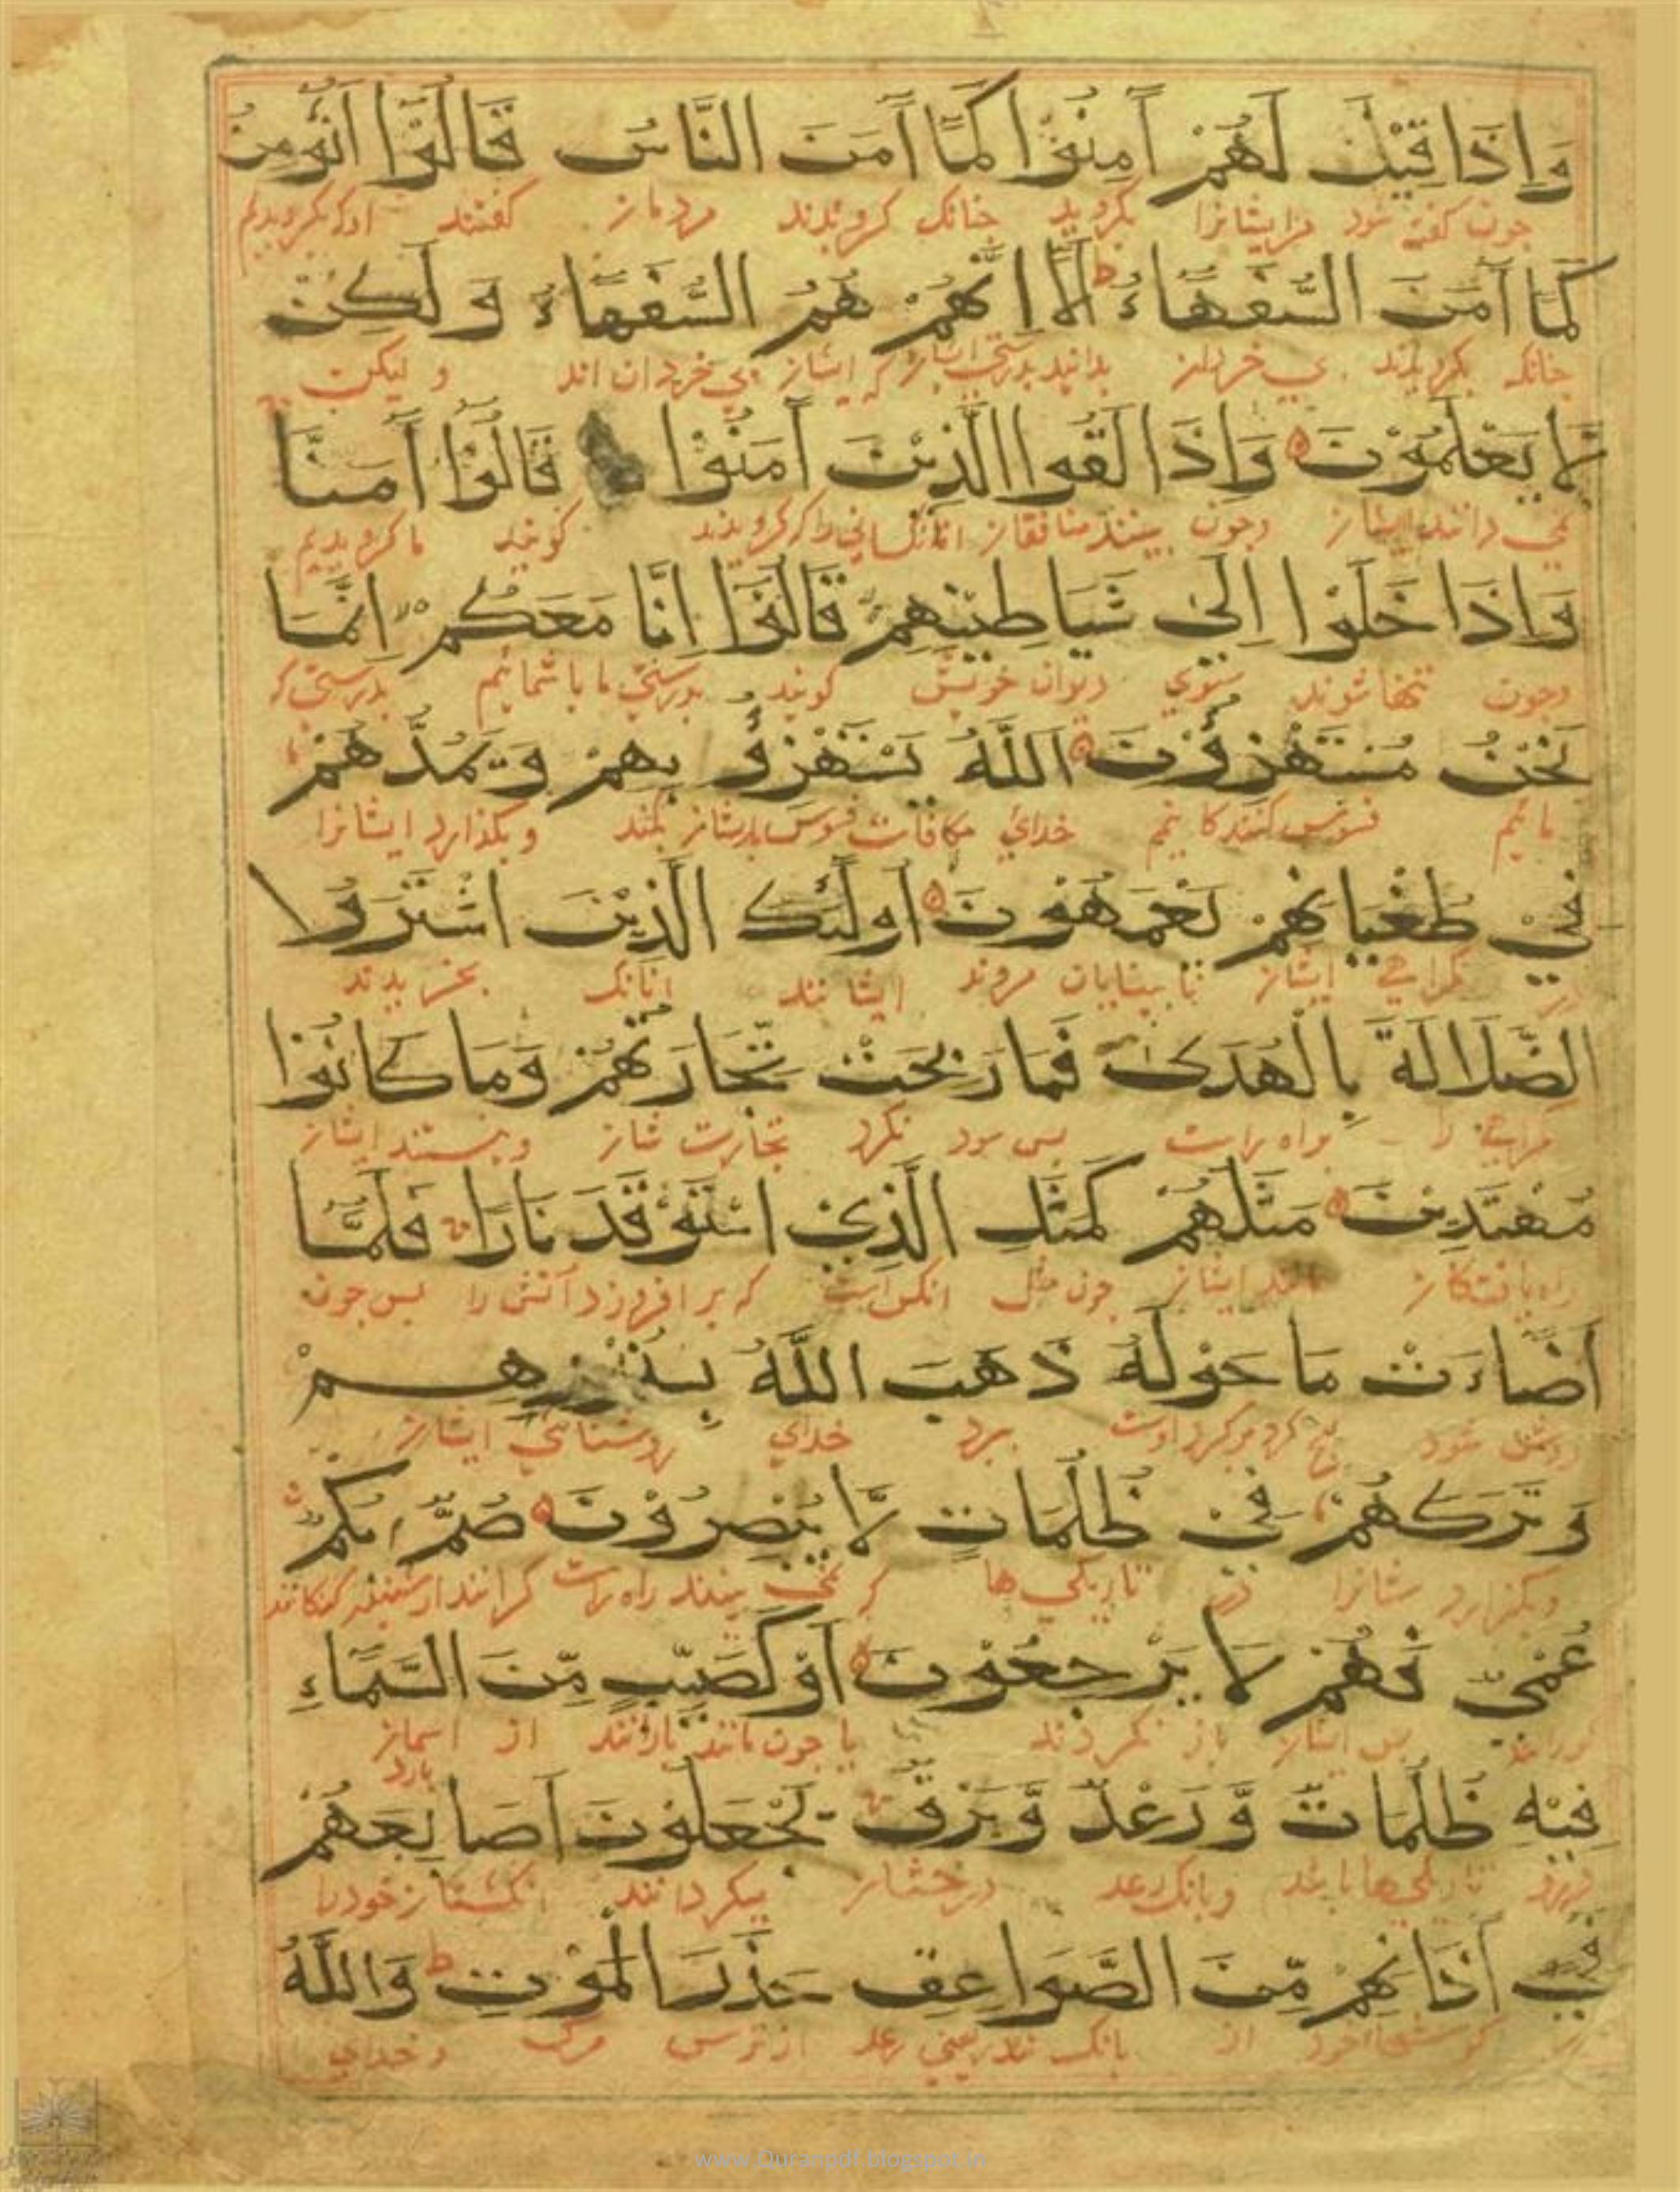 وَاِذَا قِيْلَ لَهُمْ آمِنُوْا كَمَا آمَنَ النَّاسُ قَالُوْا اَنُؤْمِنُ
چون گفته شود مرایشانرا بکروید چنانک کرویدند مردمان گفتند
كَمَا آمَنَ السُّفَهَاءُ ط اَلَا اِنَّهُمْ هُمُ السُّفَهَاءُ وَلَكِنْ
چنانکه بکرویدند بی خردان بدانید بدرستی ایشان که ایشان بی خردان اند و لیکن
لَّا يَعْلَمُوْنَ وَاِذَا لَقُوا الَّذِيْنَ آمَنُوْا قَالُوْا آمَنَّا
نمی دانند ایشان وچون بینند منافقان کرویدند گویند ما کرویدیم
وَاِذَا خَلَوْا اِلَى شَيَاطِيْنِهِمْ قَالُوْا اِنَّا مَعَكُمْ اِنَّمَا
وچون تنها شوند سوی دیوان خویش گویند بدرستی ما با شمائیم بدرستی که
نَحْنُ مُسْتَهْزِؤُنَ اَللَّهُ يَسْتَهْزِؤُ بِهِمْ وَيَمُدُّهُمْ
مائیم فسوس کنندکانیم خدای مکافات فسوس بدیشان بکند و بکذارد ایشانرا
فِيْ طُغْيَانِهِمْ يَعْمَهُوْنَ اُولَئِكَ الَّذِيْنَ اشْتَرَوُا
در کمراهی ایشان نابینایان مروند ایشانند انانک بخریدند
الضَّلَالَةَ بِالْهُدَى فَمَا رَبِحَتْ تِّجَارَتُهُمْ وَمَا كَانُوْا
کمراهی را براه راست پس سود نکرد تجارت شان ونیستند ایشان
مُهْتَدِيْنَ مَثَلُهُمْ كَمَثَلِ الَّذِيْ اسْتَوْقَدَ نَارًا فَلَمَّا
راه یافتکان مانند ایشان چون مثل انکس است که برافروزد آتش را پس چون
اَضَاءَتْ مَا حَوْلَهُ ذَهَبَ اللَّهُ بِنُوْرِهِمْ
روشن شود برد خدای روشنائی ایشان
وَتَرَكَهُمْ فِيْ ظُلُمَاتٍ لَّا يُبْصِرُوْنَ صُمٌّ بُكْمٌ
وبکزارد شانرا در تاریکی ها که نمی بینند راه راست کرانند
عُمْيٌ فَهُمْ لَا يَرْجِعُوْنَ اَوْ كَصَيِّبٍ مِّنَ السَّمَاءِ
کورانند پس ایشان باز نکردند یا چون مانند بارانند از اسمان
بارد
فِيْهِ ظُلُمَاتٌ وَّرَعْدٌ وَّبَرْقٌ يَجْعَلُوْنَ اَصَابِعَهُمْ
تاریکیها باشد وبانک رعد درخشان میکردانند انکشتان خودرا
فِيْ آذَانِهِمْ مِّنَ الصَّوَاعِقِ حَذَرَ الْمَوْتِ ط وَاللَّهُ
کوشهاء خود از بانک تند یعنی رعد از ترس مرک و خدای
www.Quranpdf.blogspot.in